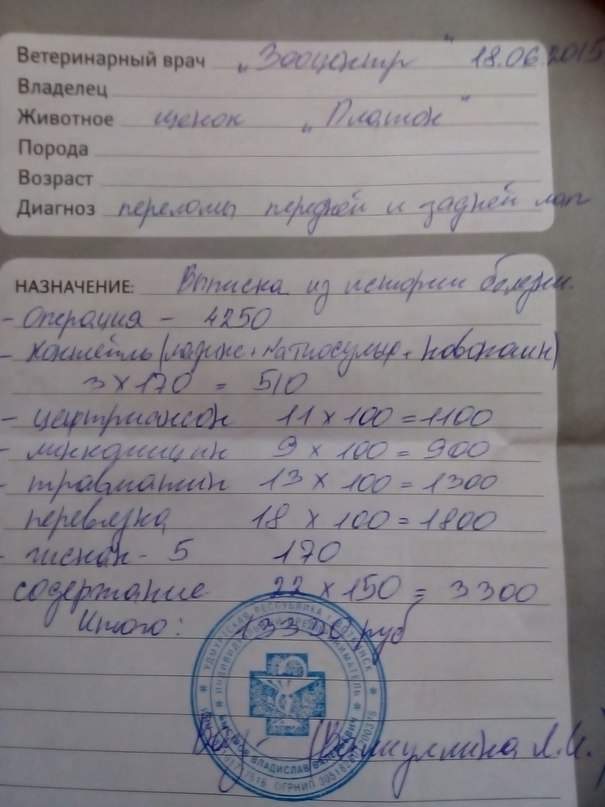 Ветеринарный врач „Зооцентр" 18.06.2015
Владелец
Животное щенок „Платон"
Порода
Возраст
Диагноз переломы передней и задней лап
НАЗНАЧЕНИЕ: Выписка из истории болезни.
- Операция - 4250
- Коктейль ( + + новокаин)
3 х 170 = 510
- цефтриаксон 11 х 100 = 1100
- линкомицин 9 х 100 = 900
- травматин 13 х 100 = 1300
перевязка 18 х 100 = 1800
- гискан - 5 170
содержание 22 х 150 = 3300
Итого: 13330 руб
УДМУРТСКАЯ РЕСПУБЛИКА
ИНДИВИДУАЛЬНЫЙ ПРЕДПРИНИМАТЕЛЬ
ВЛАДИСЛАВ
ОГРНИП